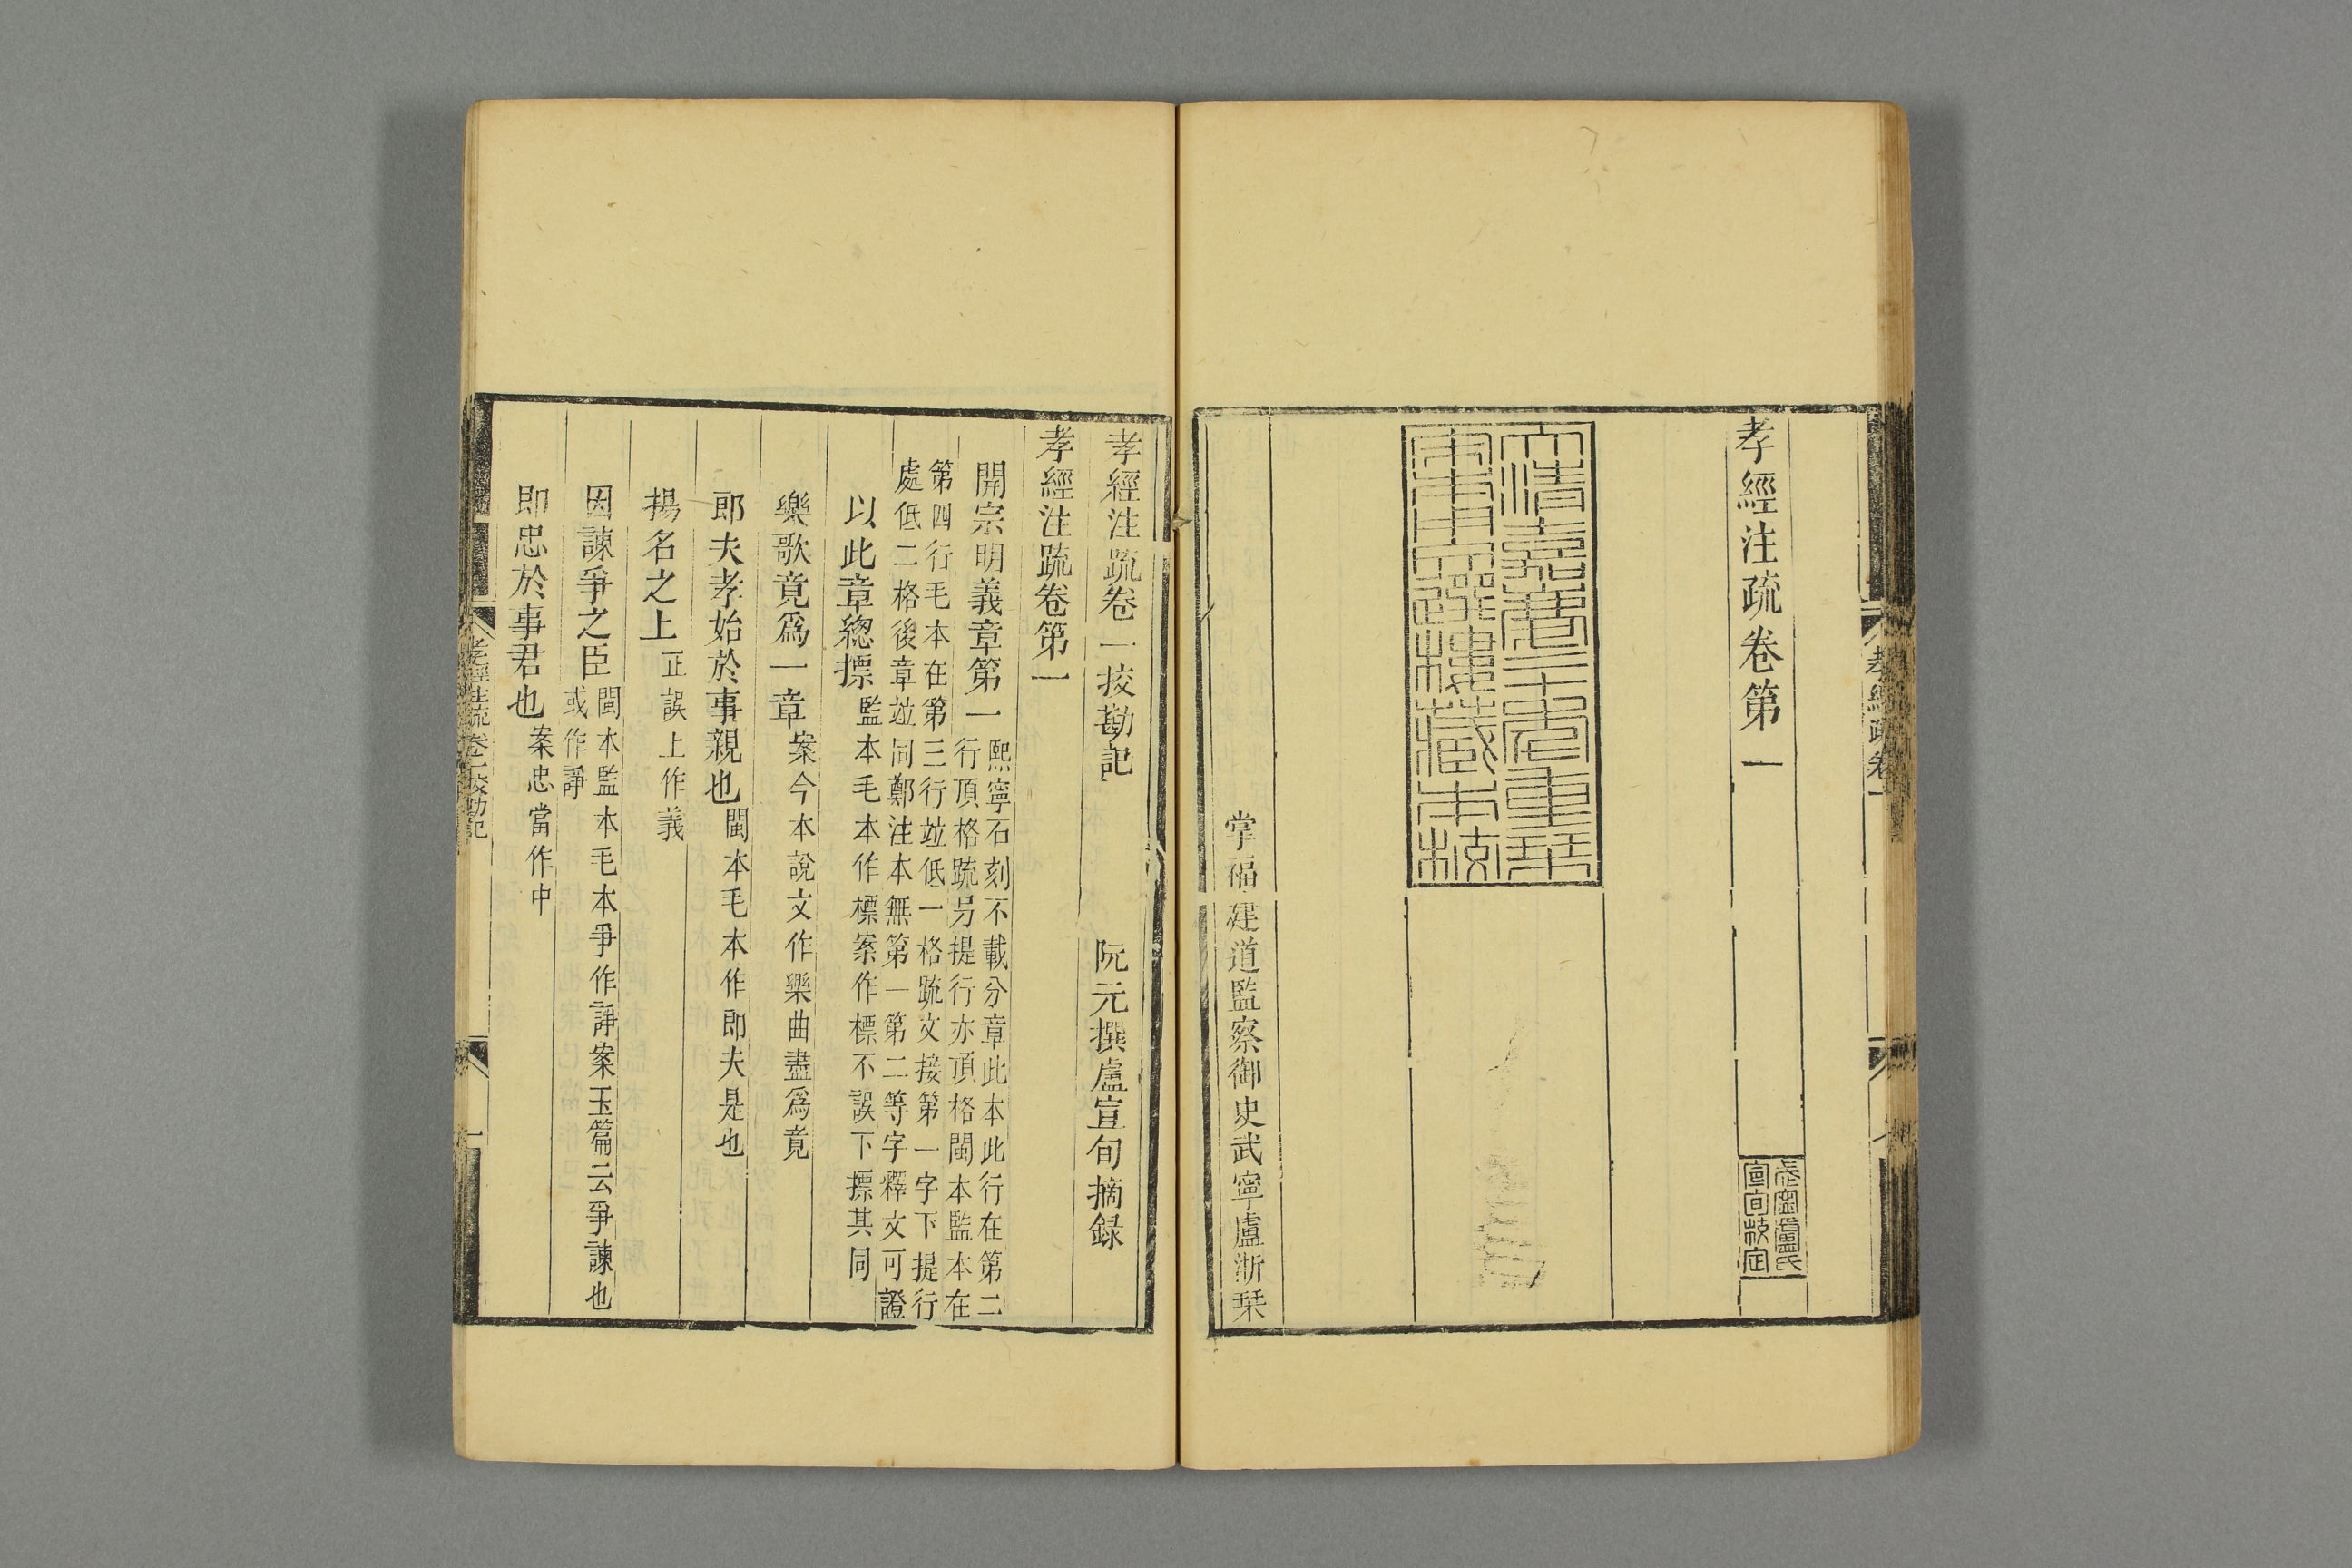 孝經疏卷一
孝經注疏卷第一
武寧盧氏
宣旬校定
大清嘉慶二十年重栞
宋本文選樓藏本校
掌福建道監察御史武寧盧浙栞
孝經注疏卷一挍勘記 阮元撰盧宣旬摘録
孝經注疏卷第一
開宗明義章第一
熙寧石刻不載分章此本此行在第二
行頂格疏另提行亦頂格閩本監本在
第四行毛本在第三行竝低一格疏文接第一字下提行
處低二格後章竝同鄭注本無第一第二等字釋文可證
以此章總摽 監本毛本作標案作標不誤下摽其同
樂歌竟爲一章 案今本說文作樂曲盡爲竟
郎夫孝始於事親也 閩本毛本作即夫是也
揚名之上 正誤上作義
因諫爭之臣
閩本監本毛本爭作諍案玉篇云爭諫也
或作諍
即忠於事君也 案忠當作中
孝經注疏卷一挍勘記
一